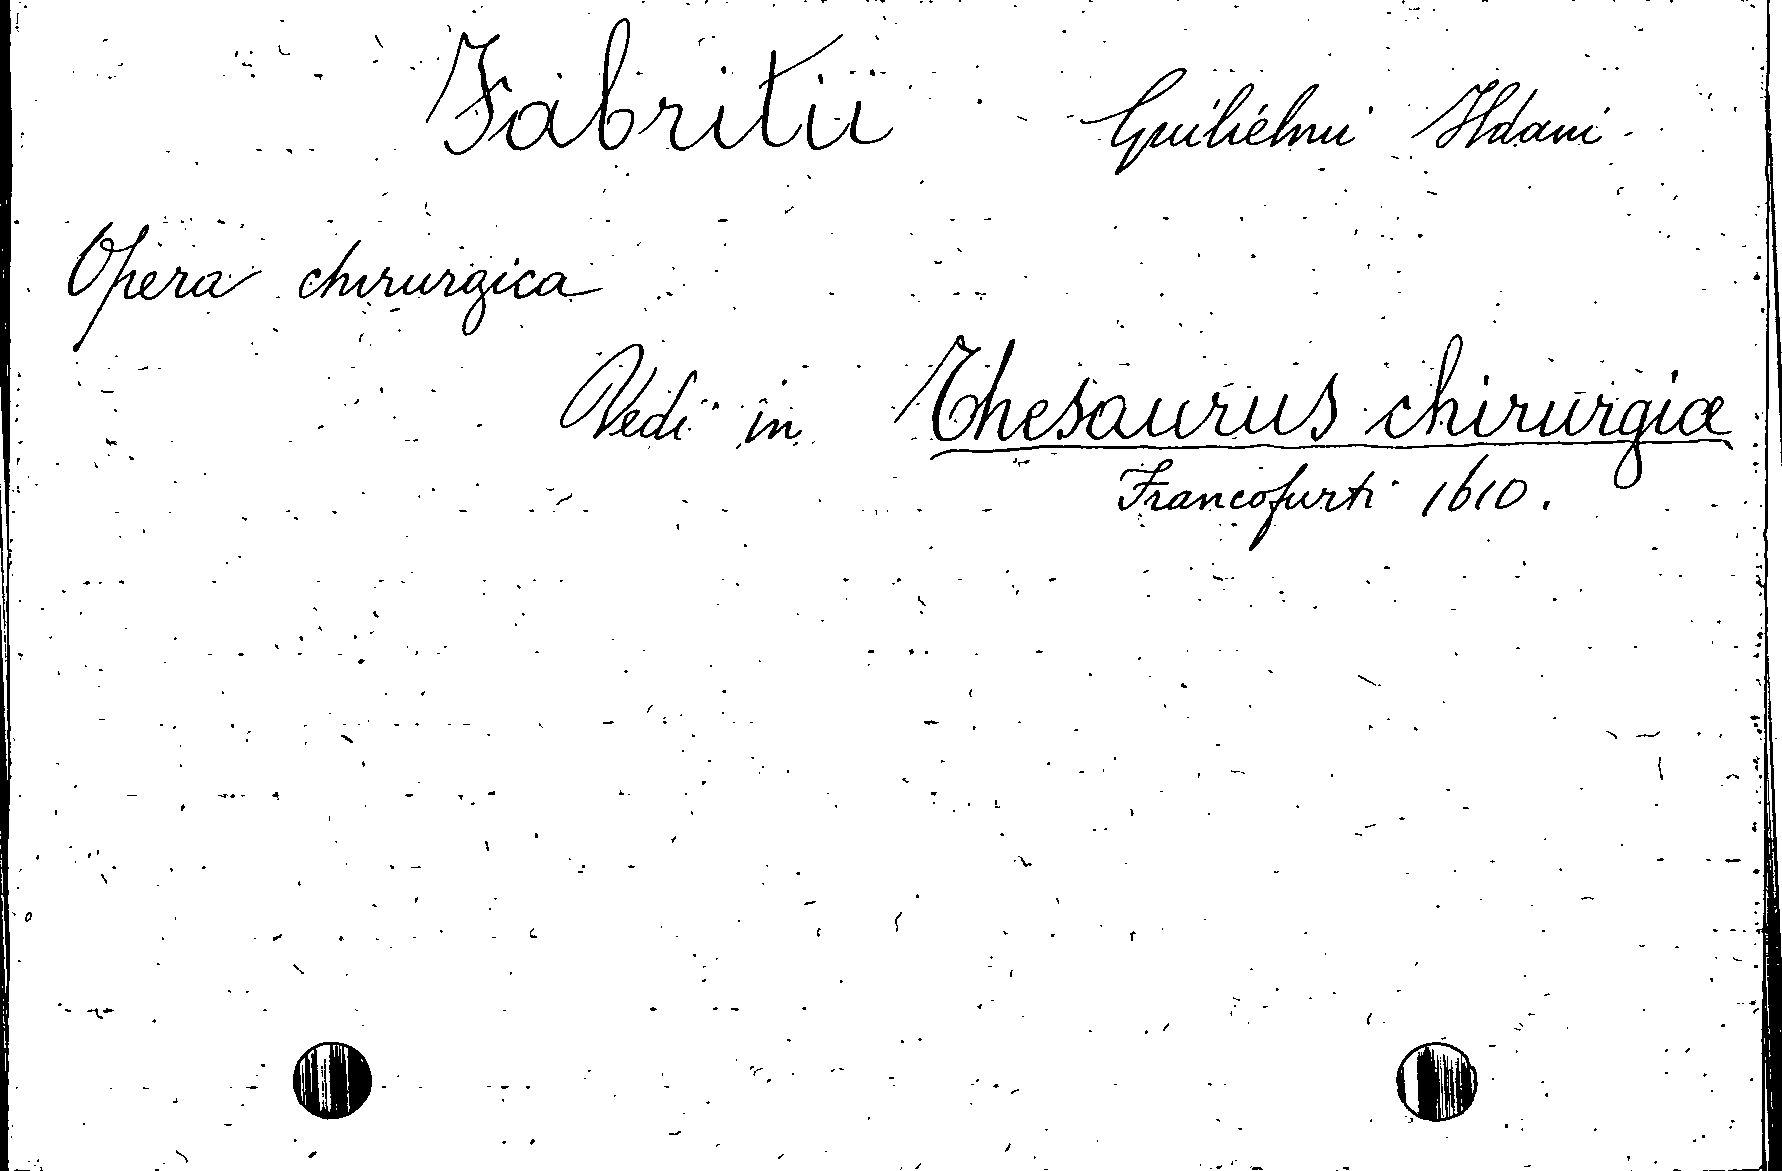 Fabritii Guilielmi Hldani
Opera chirurgica
Vedi in Thesaurus chirurgiæ
Francofurti 1610.